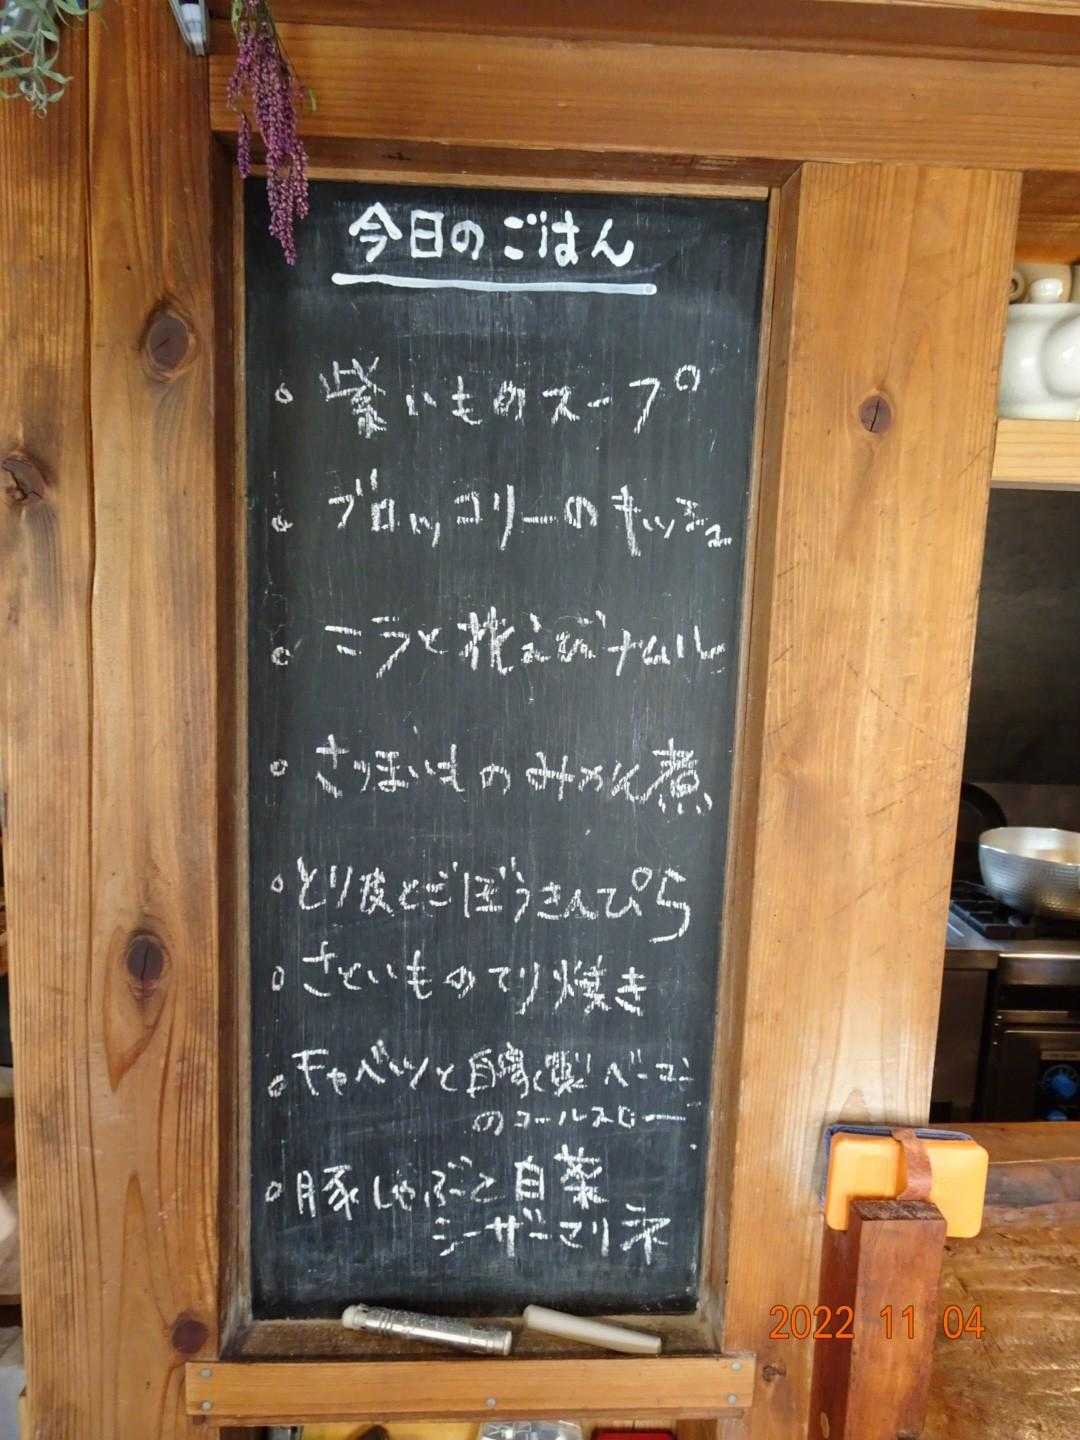 今日のごはん
紫いものスープ
ブロッコリーのキッシュ
ニラと桜えびナムル
さつまいものみかん煮
とり皮とごぼうきんぴら
さといものてり焼き
キャベツと自家製ベーコン
のコールスロー
豚しゃぶと白菜
シーザーマリネ
2022 11 04